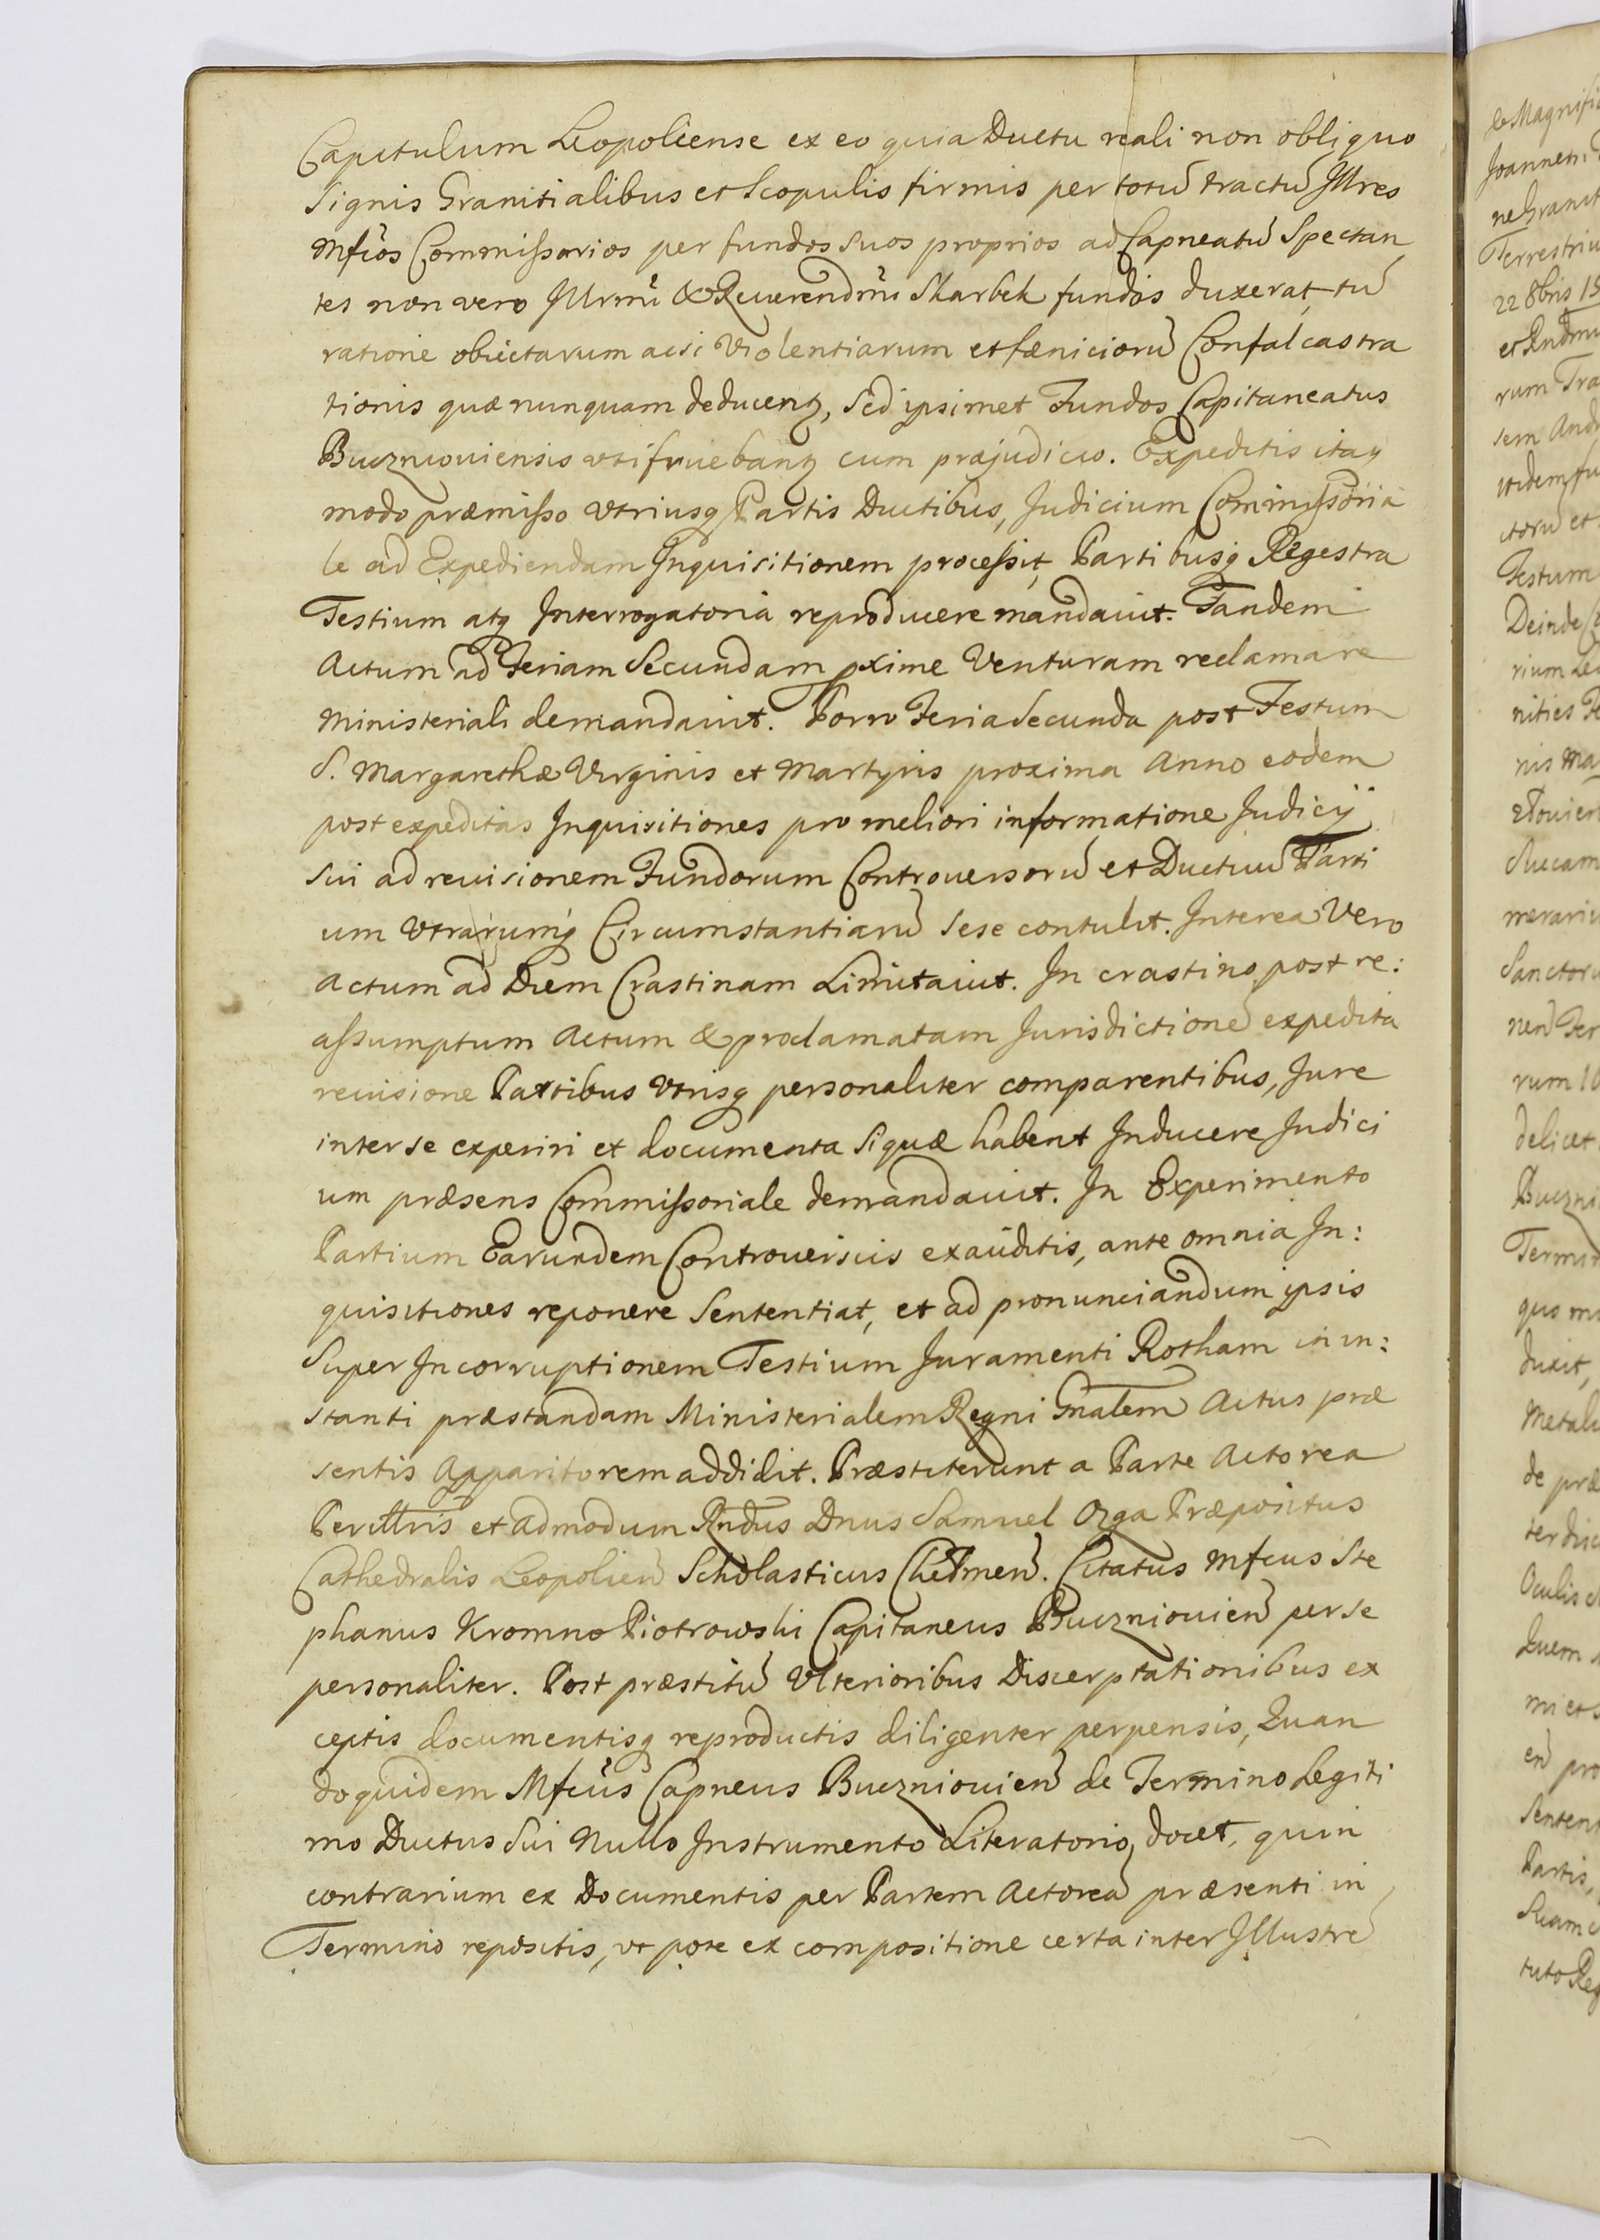 Capitulum Leopoliense ex eo quia Ductu reali non obliquo
signis Granitialibus et Scopulis firmis per totũ tractũ Illres
Mfcos Commissarios per fundos suos proprios ad Capneatũ Spectan
tes non vero Illrmi & Reuerendmi Skarbek fundos duxerat, tũ
ratione obiectarum acsi Violentiarum et fæniciorũ Confalcastra
tionis quæ nunquam deducentʒ, sed ipsimet Fundos Capitaneatus
Buczniouiensis vti fruebantʒ cum præjudicio. Expeditis itaq
modo præmisso vtriusq Partis Ductibus, Judicium Commissoria
le ad Expediendam Inquisitionem processit, Partibusq Regestra
Testium atq Interrogatoria reproducere mandauit. Tandem
Actum ad Feriam Secundam pxime Venturam reclamare
Ministeriali demandauit. Porro Feria Secunda post Festum
S. Margarethæ Virginis et Martyris proxima Anno eodem
post expeditas Inquisitiones pro meliori informatione Judicij
sui ad reuisionem Fundorum Controuersorũ et Ductuũ Parti
um Vtrarumq Circumstantiarũ sese contulit. Interea Vero
Actum ad Diem Crastinam Limitauit. In crastino post re:
assumptum Actum & proclamatam Jurisdictionẽ expedita
reuisione Partibus Vtrisq personaliter comparentibus, Jure
inter se experiri et documenta siquæ habent Inducere Judici
um præsens Commissoriale demandauit. In Experimento
Partium Earundem Controuersiis exauditis, ante omnia In:
quisitiones reponere Sententiat, et ad pronunciandum ipsis
Super Incorruptionem Testium Juramenti Rotham in in:
stanti præstandam Ministerialem Regni Gnalem Actus præ
sentis Apparitorem addidit. Præstiterunt a Parte Actorea
Perillris et admodum Rndus Dnus Samuel Ozga Præpositus
Cathedralis Leopolien̄ Scholasticus Chełmen̄. Citatus Mfcus Ste
phanus Kromno Piotrowski Capitaneus Buczniouien̄ per se
personaliter. Post præstitũ Vlterioribus Discerptationibus ex
ceptis documentisq reproductis diligenter perpensis, Quan
doquidem Mfcus Capneus Buczniouien̄ de Termino Legiti
mo Ductus sui Nullo Instrumento Literatorio docet, quin
contrarium ex Documentis per Partem Actoreã præsenti in
Termino repositis, vt pote ex compositione certa inter Illustrẽ